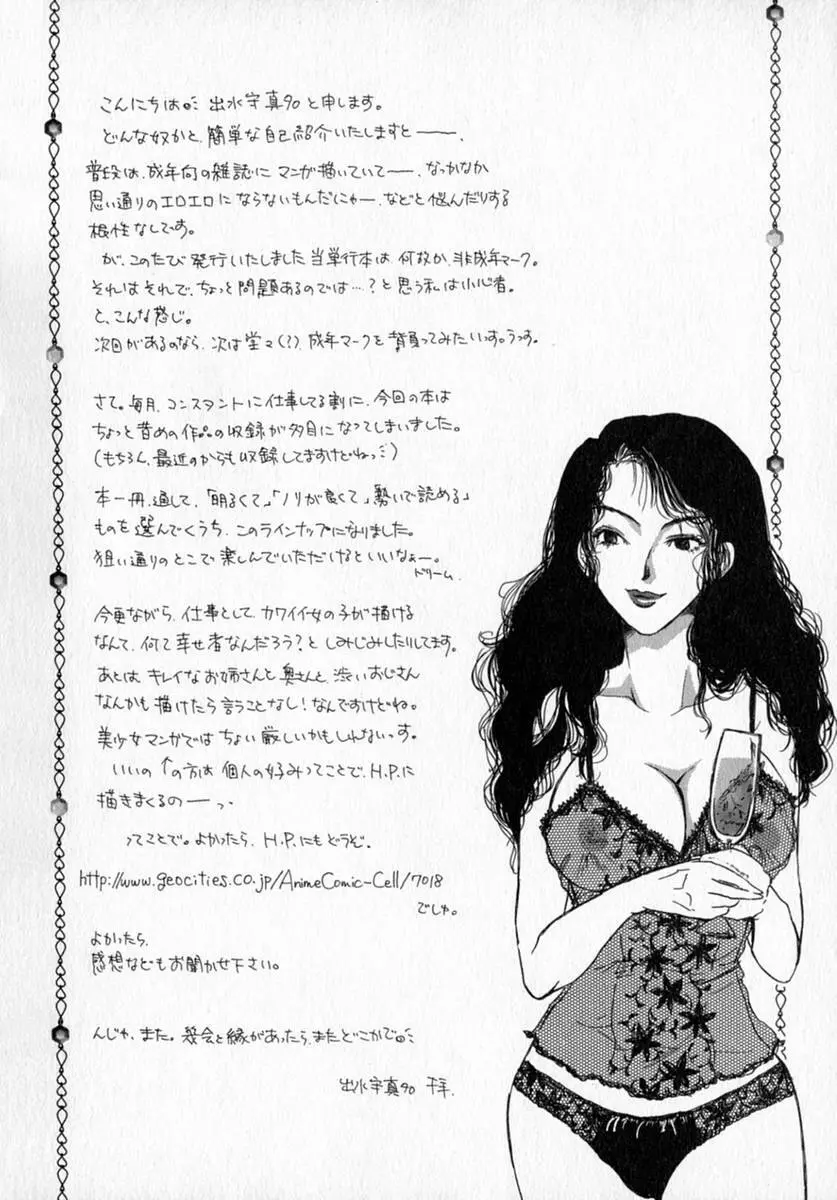 こんにちは。 出水宇真90と申します。
どんな奴かと、簡単な自己紹介いたしますと──、
普段は、成年向の雑誌に マンガ描いていて──、なっかなか
思い通りのエロエロに ならないもんだにゃ──、などと悩んだりする
根性なしです。
が、このたび 発行いたしました 当単行本は 何故か、非成年マーク。
それはそれで、ちょっと問題あるのでは…?と思う私は小心者。
と、こんな感じ。
次回があるのなら、次は堂々(?)、成年マークを背負ってみたいっす。うっす。
さて。毎月、コンスタントに仕事してる割に、今回の本は
ちょっと昔めの作品の収録が多目になってしまいました。
(もちろん、最近のからも収録してますけどねっ)
本一冊、通して、「明るくて」「ノリが良くて」「勢いで読める」
ものを選んでくうち、このラインナップになりました。
狙い通りのとこで楽しんでいただけるといいなぁー。
ドリーム。
今更ながら、仕事として、カワイイ女の子が描ける
なんて、何て幸せ者なんだろう?と しみじみしたりしてます。
あとは キレイなお姉さんと奥さんと、渋いおじさん
なんかも描けたら言うことなし!なんですけどね。
美少女マンガではちょい厳しいかもしれないっす。
いいの ↑の方は 個人の好みってことで、H.P.に
描きまくるの──っ、
ってことで。よかったら、H.P.にもどうぞ。
http://www.geocities.co.jp/AnimeComic-Cell/7018
でしゅ。
よかったら、
感想などもお聞かせ下さい。
んじゃ、また。機会と縁があったら、またどこかで。
出水宇真90 千年.